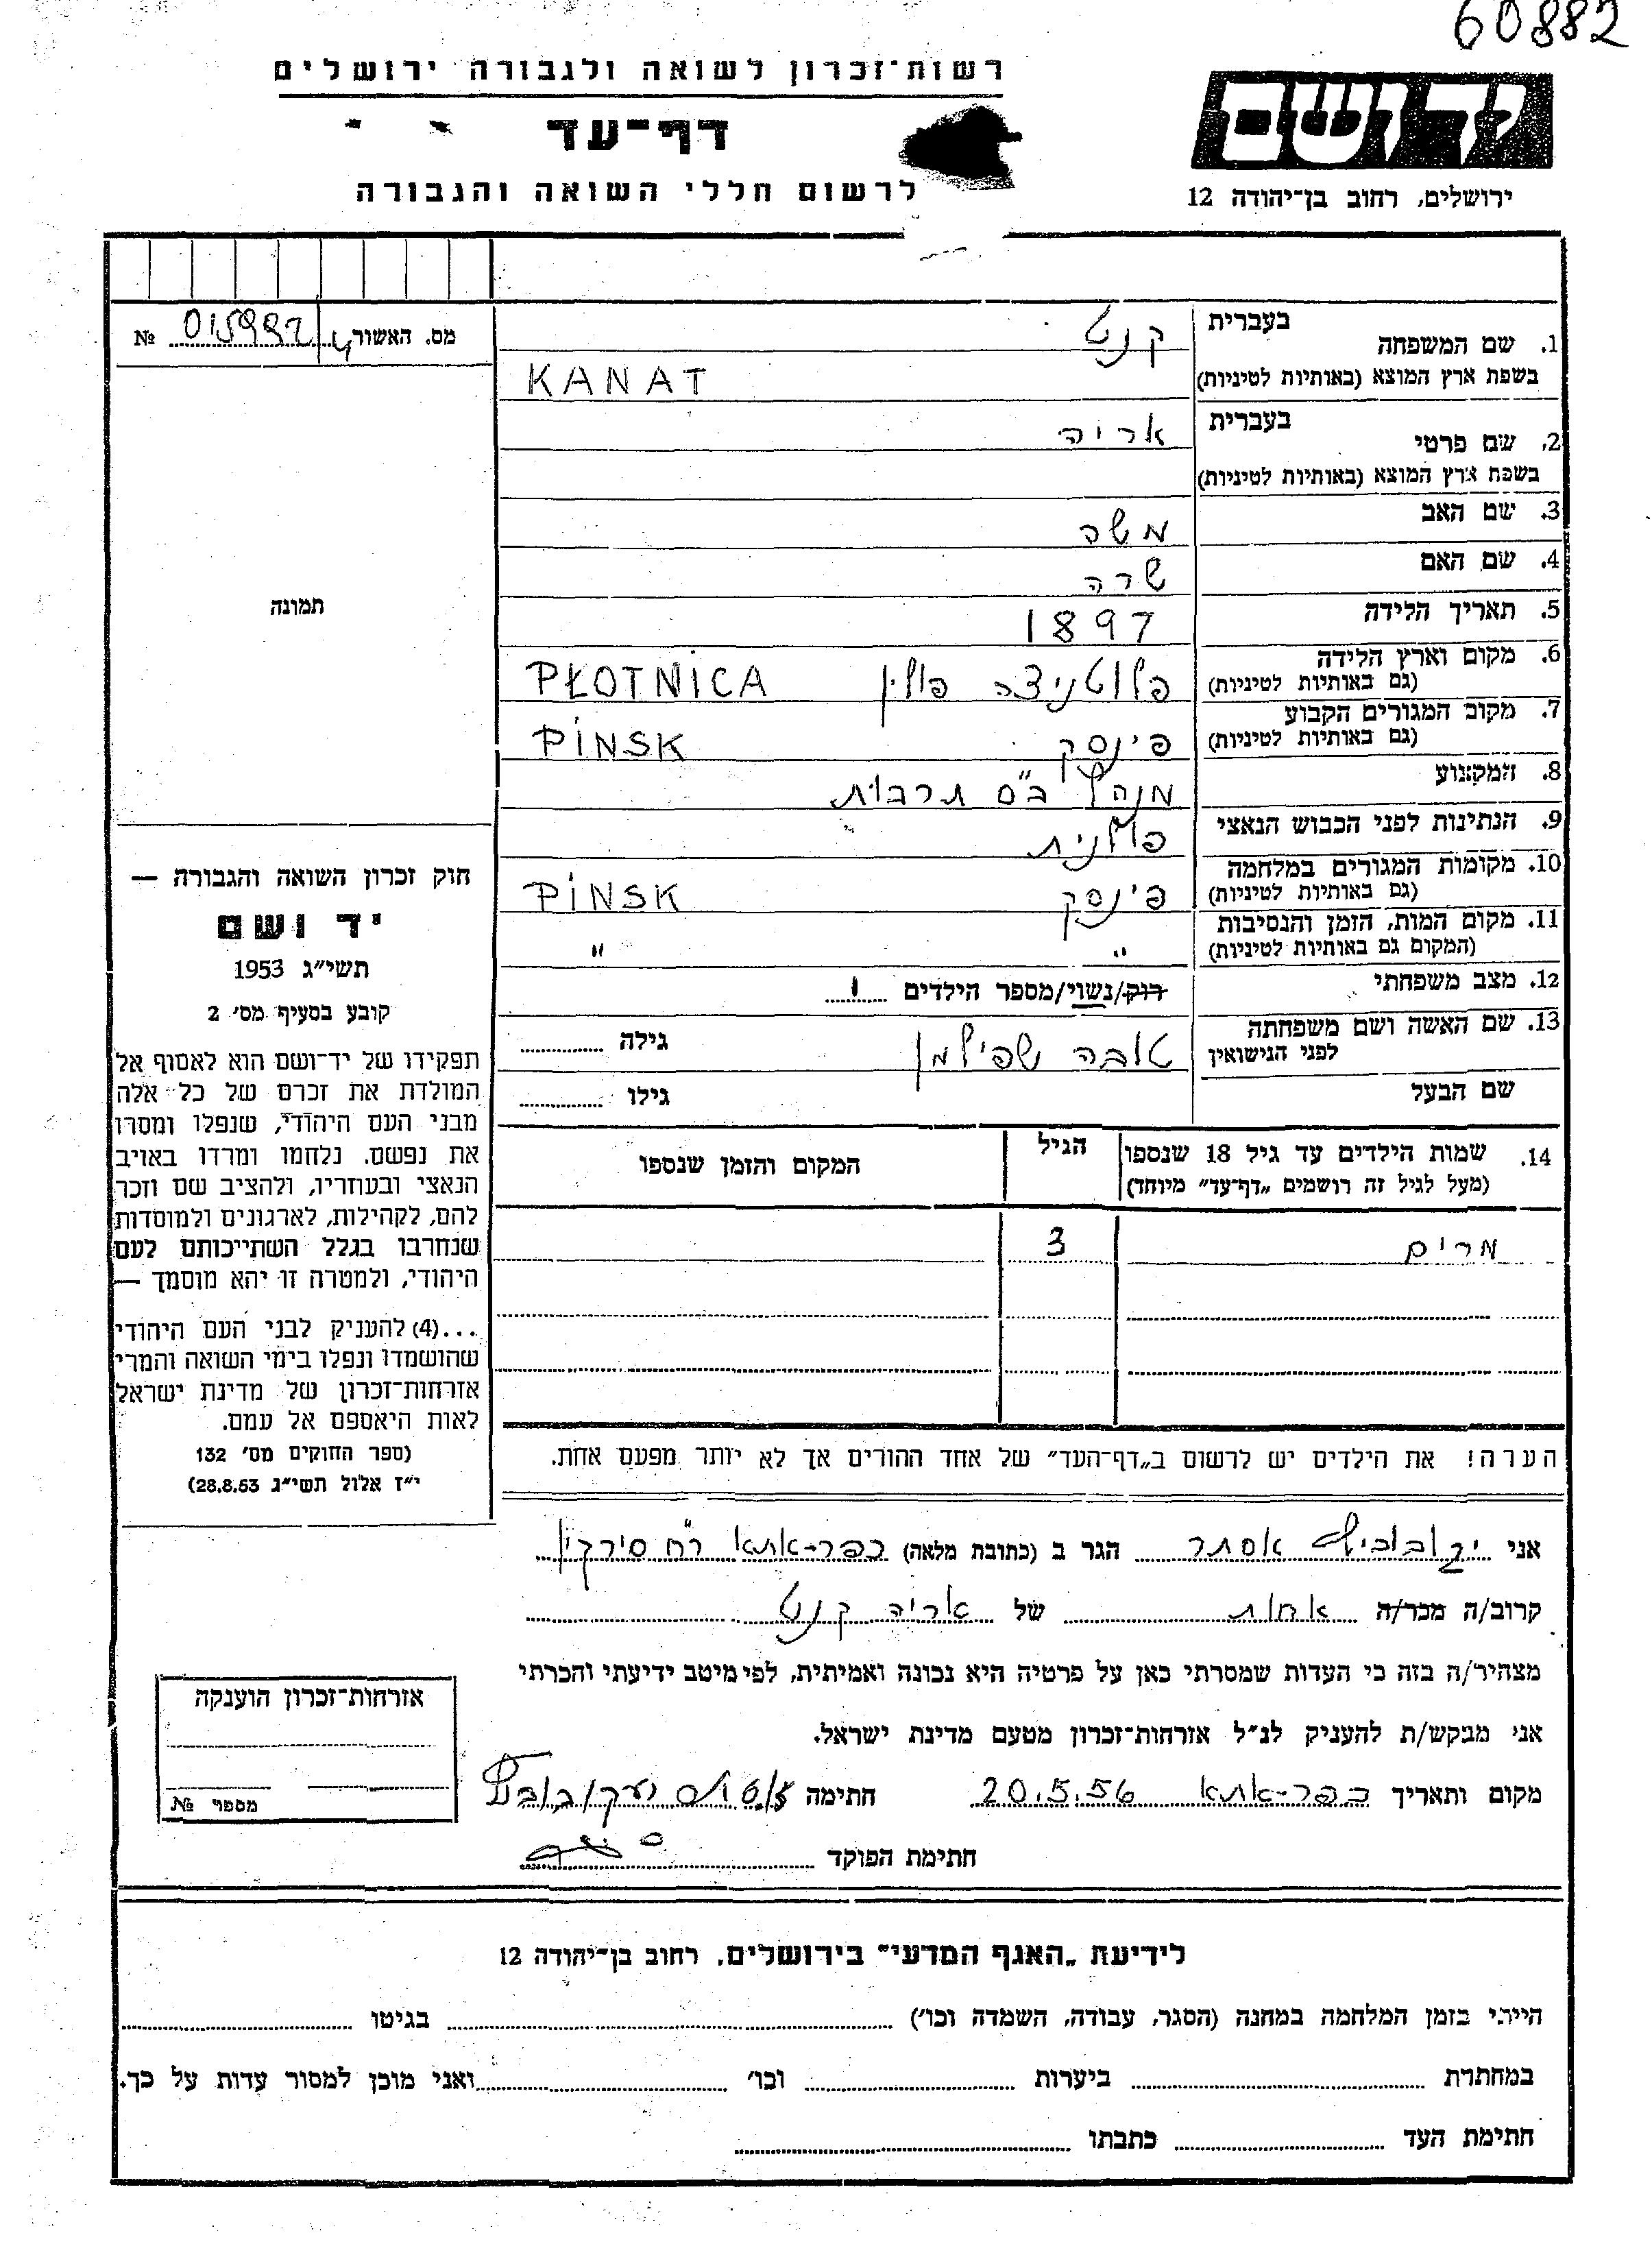 60882
רשות־זכרון לשואה ולגבורה ירושלים
דף־עד
לרשום חללי השואה והגבורה
יד ושם
ירושלים, רחוב בן־יהודה 12
מס. האשור № 015992
1. שם המשפחה בעברית קנט
בשפת ארץ המוצא (באותיות לטיניות) KANAT
2. שם פרטי בעברית אריה
בשפת ארץ המוצא (באותיות לטיניות)
3. שם האב משה
4. שם האם שרה
5. תאריך הלידה 1897
6. מקום וארץ הלידה (גם באותיות לטיניות) פלוטניצה פולין PŁOTNICA
7. מקום המגורים הקבוע (גם באותיות לטיניות) פינסק PINSK
8. המקצוע מנהל בי"ס תרבות
9. הנתינות לפני הכבוש הנאצי פולנית
10. מקומות המגורים במלחמה (גם באותיות לטיניות) פינסק PINSK
11. מקום המות, הזמן והנסיבות (המקום גם באותיות לטיניות) " "
12. מצב משפחתי רוק/נשוי/מספר הילדים 1
13. שם האשה ושם משפחתה לפני הנישואין טובה שפילמן גילה
שם הבעל גילו
14. שמות הילדים עד גיל 18 שנספו הגיל המקום והזמן שנספו
(מעל לגיל זה רושמים „דף־עד" מיוחד)
מרים 3
הערה! את הילדים יש לרשום ב„דף־העד" של אחד ההורים אך לא יותר מפעם אחת.
תמונה
חוק זכרון השואה והגבורה —
יד ושם
תשי"ג 1953
קובע בסעיף מס׳ 2
תפקידו של יד־ושם הוא לאסוף אל
המולדת את זכרם של כל אלה
מבני העם היהודי, שנפלו ומסרו
את נפשם, נלחמו ומרדו באויב
הנאצי ובעוזריו, ולהציב שם וזכר
להם, לקהילות, לארגונים ולמוסדות
שנחרבו בגלל השתייכותם לעם
היהודי, ולמטרה זו יהא מוסמך —
...(4) להעניק לבני העם היהודי
שהושמדו ונפלו בימי השואה והמרי
אזרחות־זכרון של מדינת ישראל
לאות היאספם אל עמם.
(ספר החוקים מס׳ 132
י"ז אלול תשי"ג 28.8.53)
אני יעקובוביץ אסתר הגר ב (כתובת מלאה) כפר-אתא רח' סירקין
קרוב/ה מכר/ה אחות של אריה קנט
מצהיר/ה בזה כי העדות שמסרתי כאן על פרטיה היא נכונה ואמיתית, לפי מיטב ידיעתי והכרתי
אני מבקש/ת להעניק לנ"ל אזרחות־זכרון מטעם מדינת ישראל.
מקום ותאריך כפר-אתא 20.5.56 חתימה
חתימת הפוקד
אזרחות־זכרון הוענקה
מספר №
לידיעת „האגף המדעי" בירושלים, רחוב בן־יהודה 12
הייתי בזמן המלחמה במחנה (הסגר, עבודה, השמדה וכו׳) בגיטו
במחתרת ביערות וכו׳ ואני מוכן למסור עדות על כך.
חתימת העד כתבתו